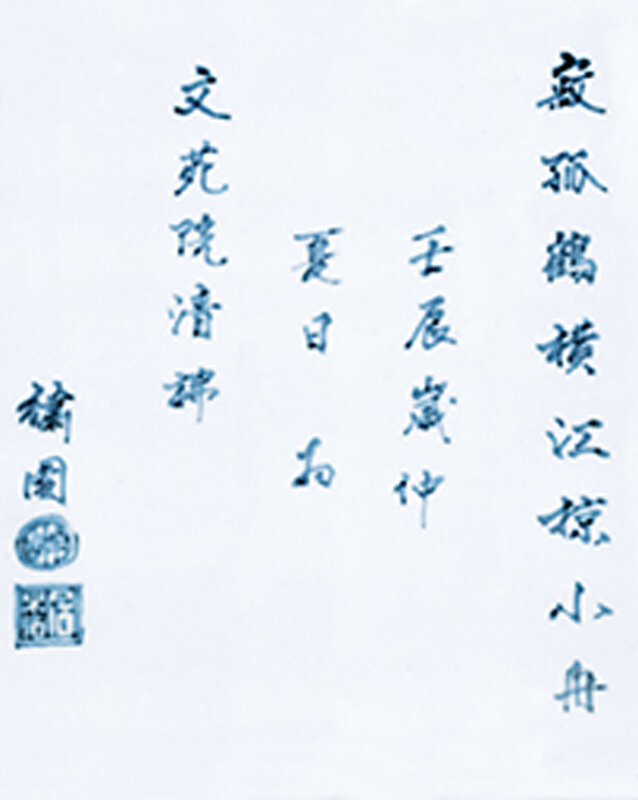 寂孤鶴橫江掠小舟
壬辰歲仲
夏日 为
文苑院清
國